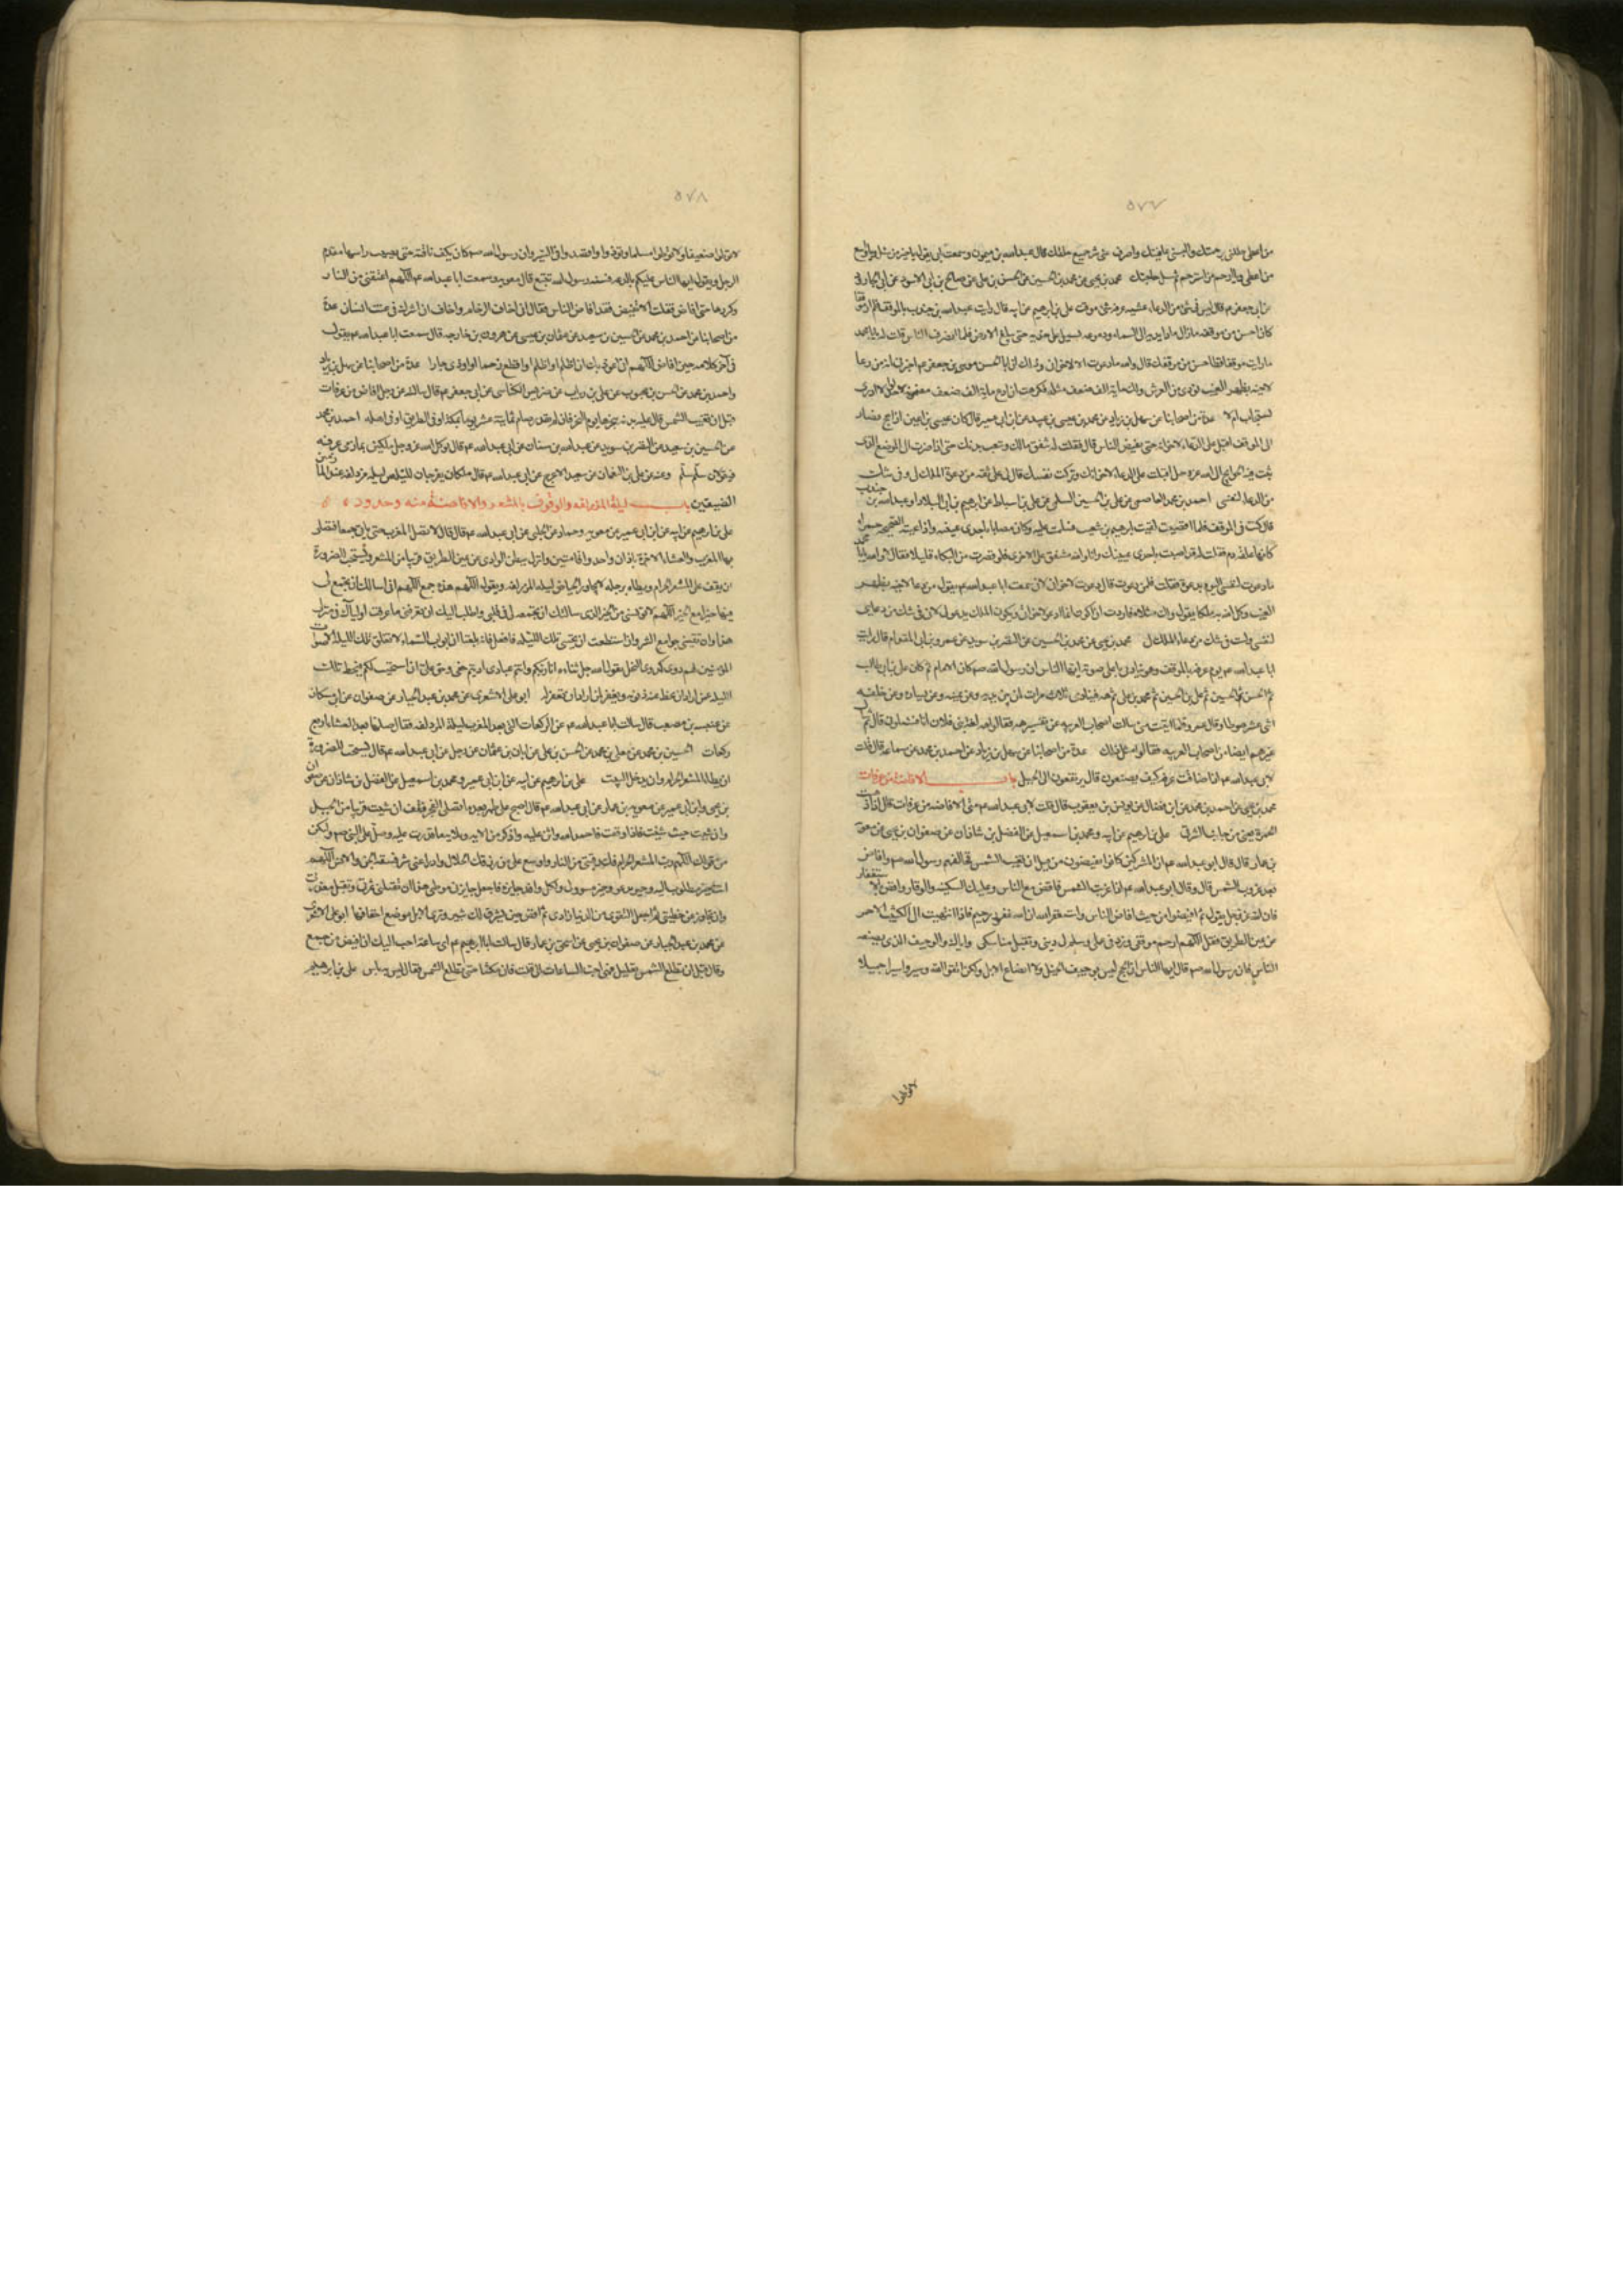 ٥٧٧
من اعطى جللنى برحمتك والبسنى عافيتك واصرف عنى شر جميع خلقك قال عبدالله بن ميمون وسمعت ابى يقول يا خير من سئل ويا اوسع
من اعطى ويا ارحم من استرحم ثم سل حاجتك محمد بن يحيى عن محمد بن الحسين عن الحسن بن على عن صالح بن ابى الاسود عن ابى الجارود
عن ابى جعفر ع قال ليس فى شئ من الدعاء عشيه عرفة شئ موقت على بن ابرهيم عن ابيه قال رايت عبدالله بن جندب بالموقف فلم ار موقفا
كان احسن من موقفه مازال مادا يديه الى السماء ودموعه تسيل على خديه حتى تبلغ الارض فلما انصرف الناس قلت له يا ابا محمد
ما رايت موقفا قط احسن من موقفك قال والله ما دعوت الا لاخوانى وذلك ان ابا الحسن موسى بن جعفر ع اخبرنى انه من دعا
لاخيه بظهر الغيب نودى من العرش ولك ماية الف ضعف مثله فكرهت ان ادع ماية الف ضعف مضمونة لواحد لا ادرى
يستجاب ام لا عدة من اصحابنا عن سهل بن زياد عن محمد بن عيسى بن عبيد عن ابن ابى عمير قال كان عيسى بن اعين اذا حج فصار
الى الموقف اقبل على الدعاء لاخوانه حتى يفيض الناس قال فقلت له تنفق مالك وتتعب بدنك حتى اذا صرت الى الموضع الذى
تبث فيه الحوايج الى الله عز وجل اقبلت على الدعاء لاخوانك وتركت نفسك قال انى على ثقه من دعوة الملك لى وفى شك
من الدعاء لنفسى احمد بن محمد العاصمى عن على بن الحسين السلمى عن على بن اسباط عن ابرهيم بن ابى البلاد او عبدالله بن جندب
قال كنت فى الموقف فلما افضت لقيت ابرهيم بن شعيب فسلمت عليه وكان مصابا باحدى عينيه واذا عينه الصحيحه حمراء
كانها علقه دم فقلت له قد اصبت باحدى عينيك وانا والله مشفق على الاخرى فلو قصرت من البكاء قليلا فقال لا والله يا ابا محمد
ما دعوت لنفسى اليوم بدعوة فقلت فلمن دعوت قال دعوت لاخوانى لانى سمعت ابا عبدالله ع يقول من دعا لاخيه بظهر
الغيب وكل الله به ملكا يقول ولك مثلاه فاردت ان اكون انما ادعو لاخوانى ويكون الملك يدعو لى لانى فى شك من دعايى
لنفسى ولست فى شك من دعاء الملك لى محمد بن يحيى عن محمد بن الحسين عن النضر بن سويد عن عمرو بن ابى المقدام قال رايت
ابا عبدالله ع يوم عرفه بالموقف وهو ينادى باعلى صوته ايها الناس ان رسول الله ص كان الامام ثم كان على بن ابى طالب
ثم الحسن ثم الحسين ثم على بن الحسين ثم محمد بن على ثم هه فينادى ثلاث مرات لمن بين يديه وعن يمينه وعن يساره ومن خلفه
اثنى عشر صوتا وقال عمرو فلما اتيت منى سالت اصحاب العربيه عن تفسير هه فقالوا هه لغة بنى فلان انا فسئلونى قال ثم سالت
غيرهم ايضا من اصحاب العربيه فقالوا مثل ذلك عدة من اصحابنا عن سهل بن زياد عن احمد بن محمد عن سماعه قال قلت
لابى عبدالله ع اذا ضاقت عرفه كيف يصنعون قال يرتفعون الى الجبل باب الافاضة من عرفات
محمد بن يحيى عن احمد بن محمد عن ابن فضال عن يونس بن يعقوب قال قلت لابى عبدالله ع متى الافاضه من عرفات قال اذا ذهبت
الحمرة يعنى من جانب الشرقى على بن ابرهيم عن ابيه ومحمد بن اسمعيل عن الفضل بن شاذان عن صفوان بن يحيى عن معوية
بن عمار قال قال ابو عبدالله ع ان المشركين كانوا يفيضون من قبل ان تغيب الشمس فخالفهم رسول الله ص وافاض
بعد غروب الشمس قال وقال ابو عبدالله ع اذا غربت الشمس فافض مع الناس وعليك السكينه والوقار وافض بالاستغفار
فان الله عز وجل يقول ثم افيضوا من حيث افاض الناس واستغفروا الله ان الله غفور رحيم فاذا انتهيت الى الكثيب الاحمر
عن يمين الطريق فقل اللهم ارحم موقفى وزد فى عملى وسلم لى دينى وتقبل مناسكى واياك والوجيف الذى يصنعه
الناس فان رسول الله ص قال ايها الناس ان الحج ليس بوجيف الخيل ولا ايضاع الابل ولكن اتقوا الله وسيروا سيرا جميلا
لا توطوا
٥٧٨
لا توطوا ضعيفا ولا توطوا مسلما وتوادوا واقتصدوا فى السير وان رسول الله ص كان يكف ناقته حتى يصيب راسها مقدم
الرجل ويقول ايها الناس عليكم بالدعه فسنة رسول الله تتبع قال معويه وسمعت ابا عبدالله ع يقول اللهم اعتقنى من النار
وكررها حتى افاض فقلت الا تفيض فقد افاض الناس فقال انى اخاف الزحام واخاف ان اشرك فى عنت انسان عدة
من اصحابنا عن احمد بن محمد عن الحسين بن سعيد عن حماد بن عيسى عن هرون بن خارجه قال سمعت ابا عبدالله ع يقول
فى آخر كلامه حين افاض اللهم انى اعوذ بك ان اظلم او اظلم او اقطع رحما او اوذى جارا عدة من اصحابنا عن سهل بن زياد
واحمد بن محمد عن الحسن بن محبوب عن على بن رياب عن ضريس الكناسى عن ابى جعفر ع قال سالته عن رجل افاض من عرفات
قبل ان تغيب الشمس قال عليه بدنه ينحرها يوم النحر فان لم يقدر صام ثمانية عشر يوما بمكة او فى الطريق او فى اهله احمد بن محمد
عن الحسين بن سعيد عن النضر بن سويد عن عبدالله بن سنان عن ابى عبدالله ع قال يوكل الله عز وجل ملكين بمازمى عرفه
فيقولان سلم سلم وعنه عن على بن النعمان عن سعيد الاعرج عن ابى عبدالله ع قال ملكان يفرجان للناس ليله مزدلفه عند المازمين
الضيقين باب ليلة المزدلفه والوقوف بالمشعر والافاضة منه وحدوده
على بن ابرهيم عن ابيه عن ابن ابى عمير عن معويه وحماد عن الحلبى عن ابى عبدالله ع قال قال لا تصل المغرب حتى تاتى جمعا فتصلى
بها المغرب والعشاء الاخرة باذان واحد واقامتين وانزل ببطن الوادى عن يمين الطريق قريبا من المشعر ويستحب للصرورة
ان يقف على المشعر الحرام ويطاه برجله ولا تجاوز الحياض ليله المزدلفه ويقول اللهم هذه جمع اللهم انى اسالك ان تجمع لى
فيها جوامع الخير اللهم لا تويسنى من الخير الذى سالتك ان تجمعه لى فى قلبى واطلب اليك ان تعرفنى ما عرفت اولياءك فى منزلى
هذا وان تقينى جوامع الشر وان استطعت ان تحيى تلك الليله فافعل فانه بلغنا ان ابواب السماء لا تغلق تلك الليله لاصوات
المؤمنين لهم دوى كدوى النحل يقول الله جل ثناءه انا ربكم وانتم عبادى اديتم حقى وحق على ان استجيب لكم فيحط تلك
الليله عمن اراد ان يحط عنه ذنوبه ويغفر لمن اراد ان يغفر له ابو على الاشعرى عن محمد بن عبد الجبار عن صفوان عن ابن مسكان
عن عنبسه بن مصعب قال سالت ابا عبدالله ع عن الركعات التى بعد المغرب ليلة المزدلفه فقال صلها بعد العشاء اربع
ركعات الحسين بن محمد عن معلى بن محمد عن الحسن بن على عن ابان بن عثمان عن رجل عن ابى عبدالله ع قال يستحب للصرورة
ان يطا المشعر الحرام وان يدخل البيت على بن ابرهيم عن ابيه عن ابن ابى عمير ومحمد بن اسمعيل عن الفضل بن شاذان عن صفوان
بن يحيى وابن ابى عمير عن معويه بن عمار عن ابى عبدالله ع قال اصبح على طهر بعد ما تصلى الفجر فقف ان شيت قريبا من الجبل
وان شيت حيث شيت فاذا وقفت فاحمد الله واثن عليه واذكر من الايه وبلايه ما قدرت عليه وصل على النبى ص وليكن
من قولك اللهم رب المشعر الحرام فك رقبتى من النار واوسع على من رزقك الحلال وادرا عنى شر فسقة الجن والانس اللهم
انت خير مطلوب اليه وخير مدعو وخير مسوول ولكل وافد جايزة فاجعل جايزتى فى موطنى هذا ان تقيلنى عثرتى وتقبل معذرتى
وان تجاوز عن خطيئتى ثم اجعل التقوى من الدنيا زادى ثم افض حين يشرق لك ثبير وترى الابل موضع اخفافها ابو على الاشعرى
عن محمد بن عبد الجبار عن صفوان بن يحيى عن اسحق بن عمار قال سالت ابا ابرهيم ع اى ساعة احب اليك ان افيض من جمع
وقال قبل ان تطلع الشمس بقليل فهى احب الساعات الى قلت فان مكثنا حتى تطلع الشمس فقال ليس به باس على بن ابرهيم